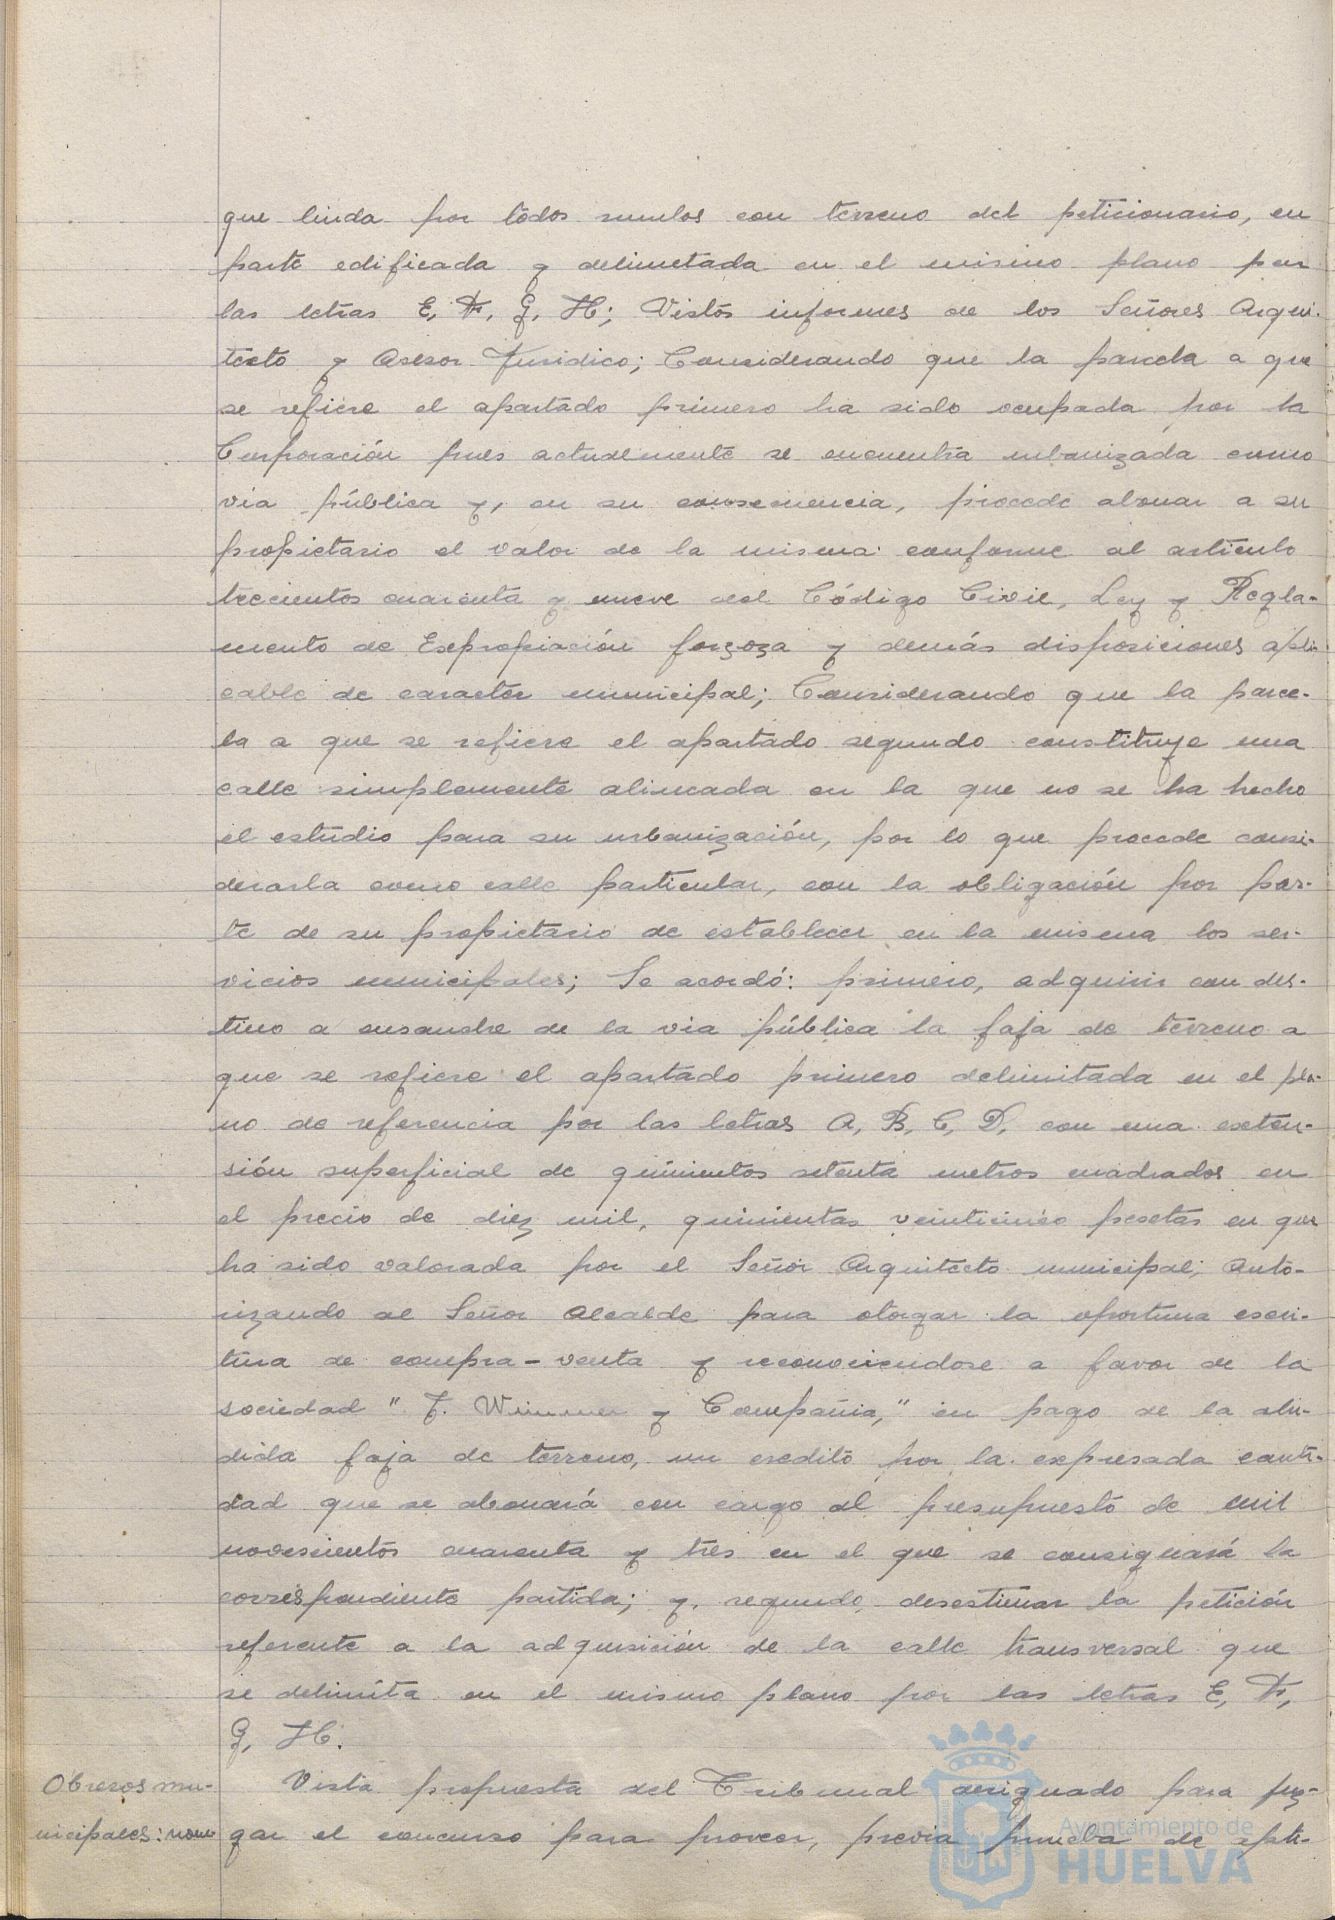 que linda por todos rumbos con terreno del peticionario, en
parte edificada y delimetada en el mismo plano por
las letras E, F, G, H; Vistos informes de los Señores Arqui-
tecto y Asesor Jurídico; Considerando que la parcela a que
se refiere el apartado primero ha sido ocupada por la
Corporación pues actualmente se encuentra urbanizada como
via pública y, en su consecuencia, procede abonar a su
propietario el valor de la misma conforme al artículo
trecientos cuarenta y nueve del Código Civil, Ley y Regla-
mento de Expropiación forzoza y demás disposiciones apli-
cable de caracter municipal; Considerando que la parce-
la a que se refiere el apartado segundo constituye una
calle simplemente alineada en la que no se ha hecho
el estudio para su urbanización, por lo que procede consi-
derarla como calle particular, con la obligación por par-
te de su propietario de establecer en la misma los ser-
vicios municipales; Se acordó: primero, adquirir con des-
tino a ensanche de la via pública la faja de terreno a
que se refiere el apartado primero delimitada en el pla-
no de referencia por las letras A, B, C, D, con una exten-
sión superficial de quinientos setenta metros cuadrados en
el precio de diez mil, quinientas veinticinco pesetas en que
ha sido valorada por el Señor Arquitecto municipal; Auto-
rizando al Señor Alcalde para otorgar la oportuna escri-
tura de compra-venta y reconociendose a favor de la
sociedad " F. Wimmer y Compañia," en pago de la alu-
dida faja de terreno, un credito por la expresada canti-
dad que se abonará con cargo al presupuesto de mil
novescientos cuarenta y tres en el que se consignará la
correspondiente partida; y, segundo, desestimar la petición
referente a la adquisición de la calle transversal que
se delimita en el mismo plano por las letras E, F,
G, H.
Obreros mu-
nicipales: nom
Vista propuesta del Tribunal designado para juz-
gar el concurso para proveer, previa prueba de apti-
Ayuntamiento de
HUELVA